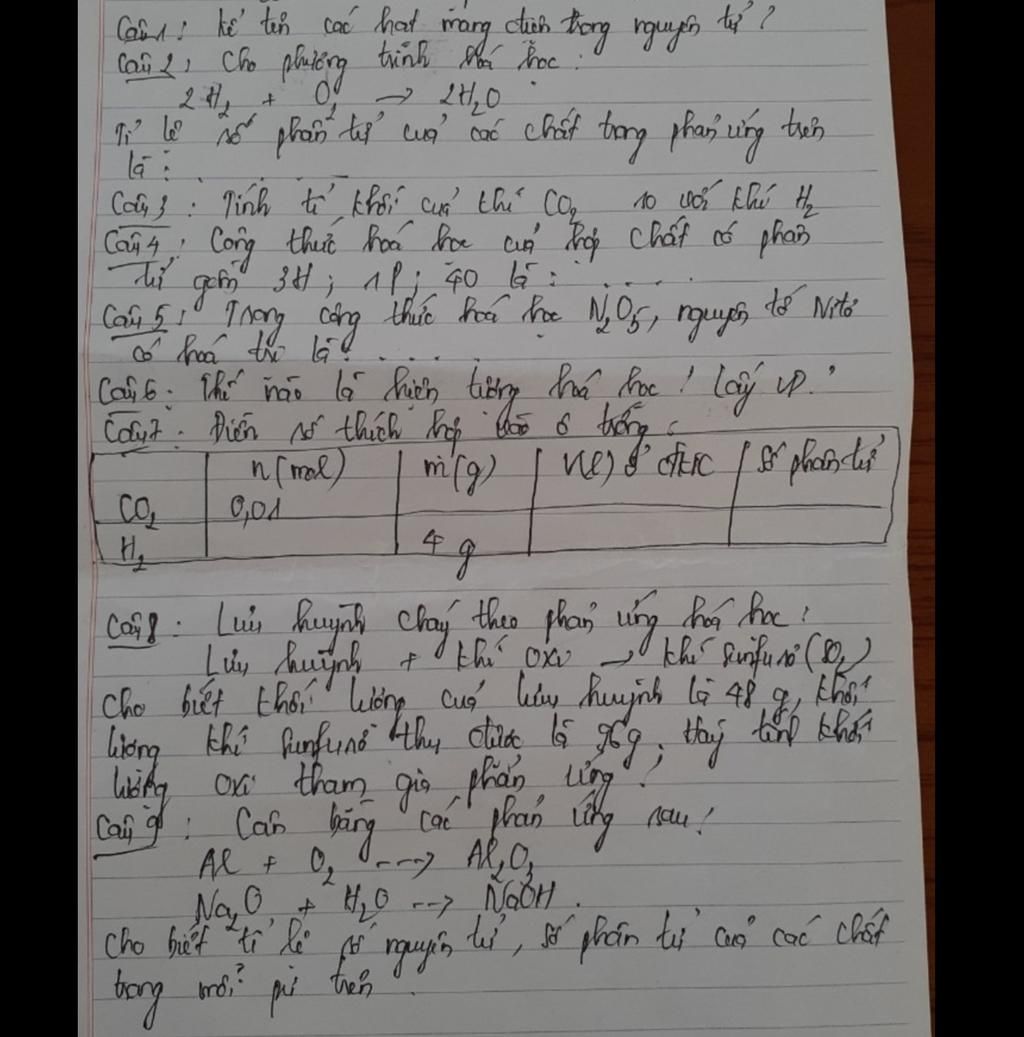 Câu 1: Kể tên các hạt mang điện trong nguyên tử?
Câu 2: Cho phương trình hoá học:
2H₂ + O₂ → 2H₂O
Tỉ lệ số phân tử của các chất trong phản ứng trên
là: . . . . . .
Câu 3: Tính tỉ khối của khí CO₂ so với khí H₂
Câu 4: Công thức hoá học của hợp chất có phân
tử gồm 3H; 1P; 4O là: . . . . . .
Câu 5: Trong công thức hoá học N₂O₅, nguyên tố Nitơ
có hoá trị là: . . . .
Câu 6: Thế nào là hiện tượng hoá học! Lấy VD.
Câu 7: Điền số thích hợp vào ô trống:
n(mol) m(g) V(l) ở đktc Số phân tử
CO₂ 0,01
H₂ 4 g
Câu 8: Lưu huỳnh cháy theo phản ứng hoá học:
Lưu huỳnh + khí oxi → khí sunfurơ (SO₂)
Cho biết khối lượng của lưu huỳnh là 48 g, khối
lượng khí sunfurơ thu được là 96g. Hãy tính khối
lượng oxi tham gia phản ứng?
Câu 9: Cân bằng các phản ứng sau!
Al + O₂ ---> Al₂O₃
Na₂O + H₂O --> NaOH.
Cho biết tỉ lệ số nguyên tử, số phân tử của các chất
trong mỗi pứ trên.